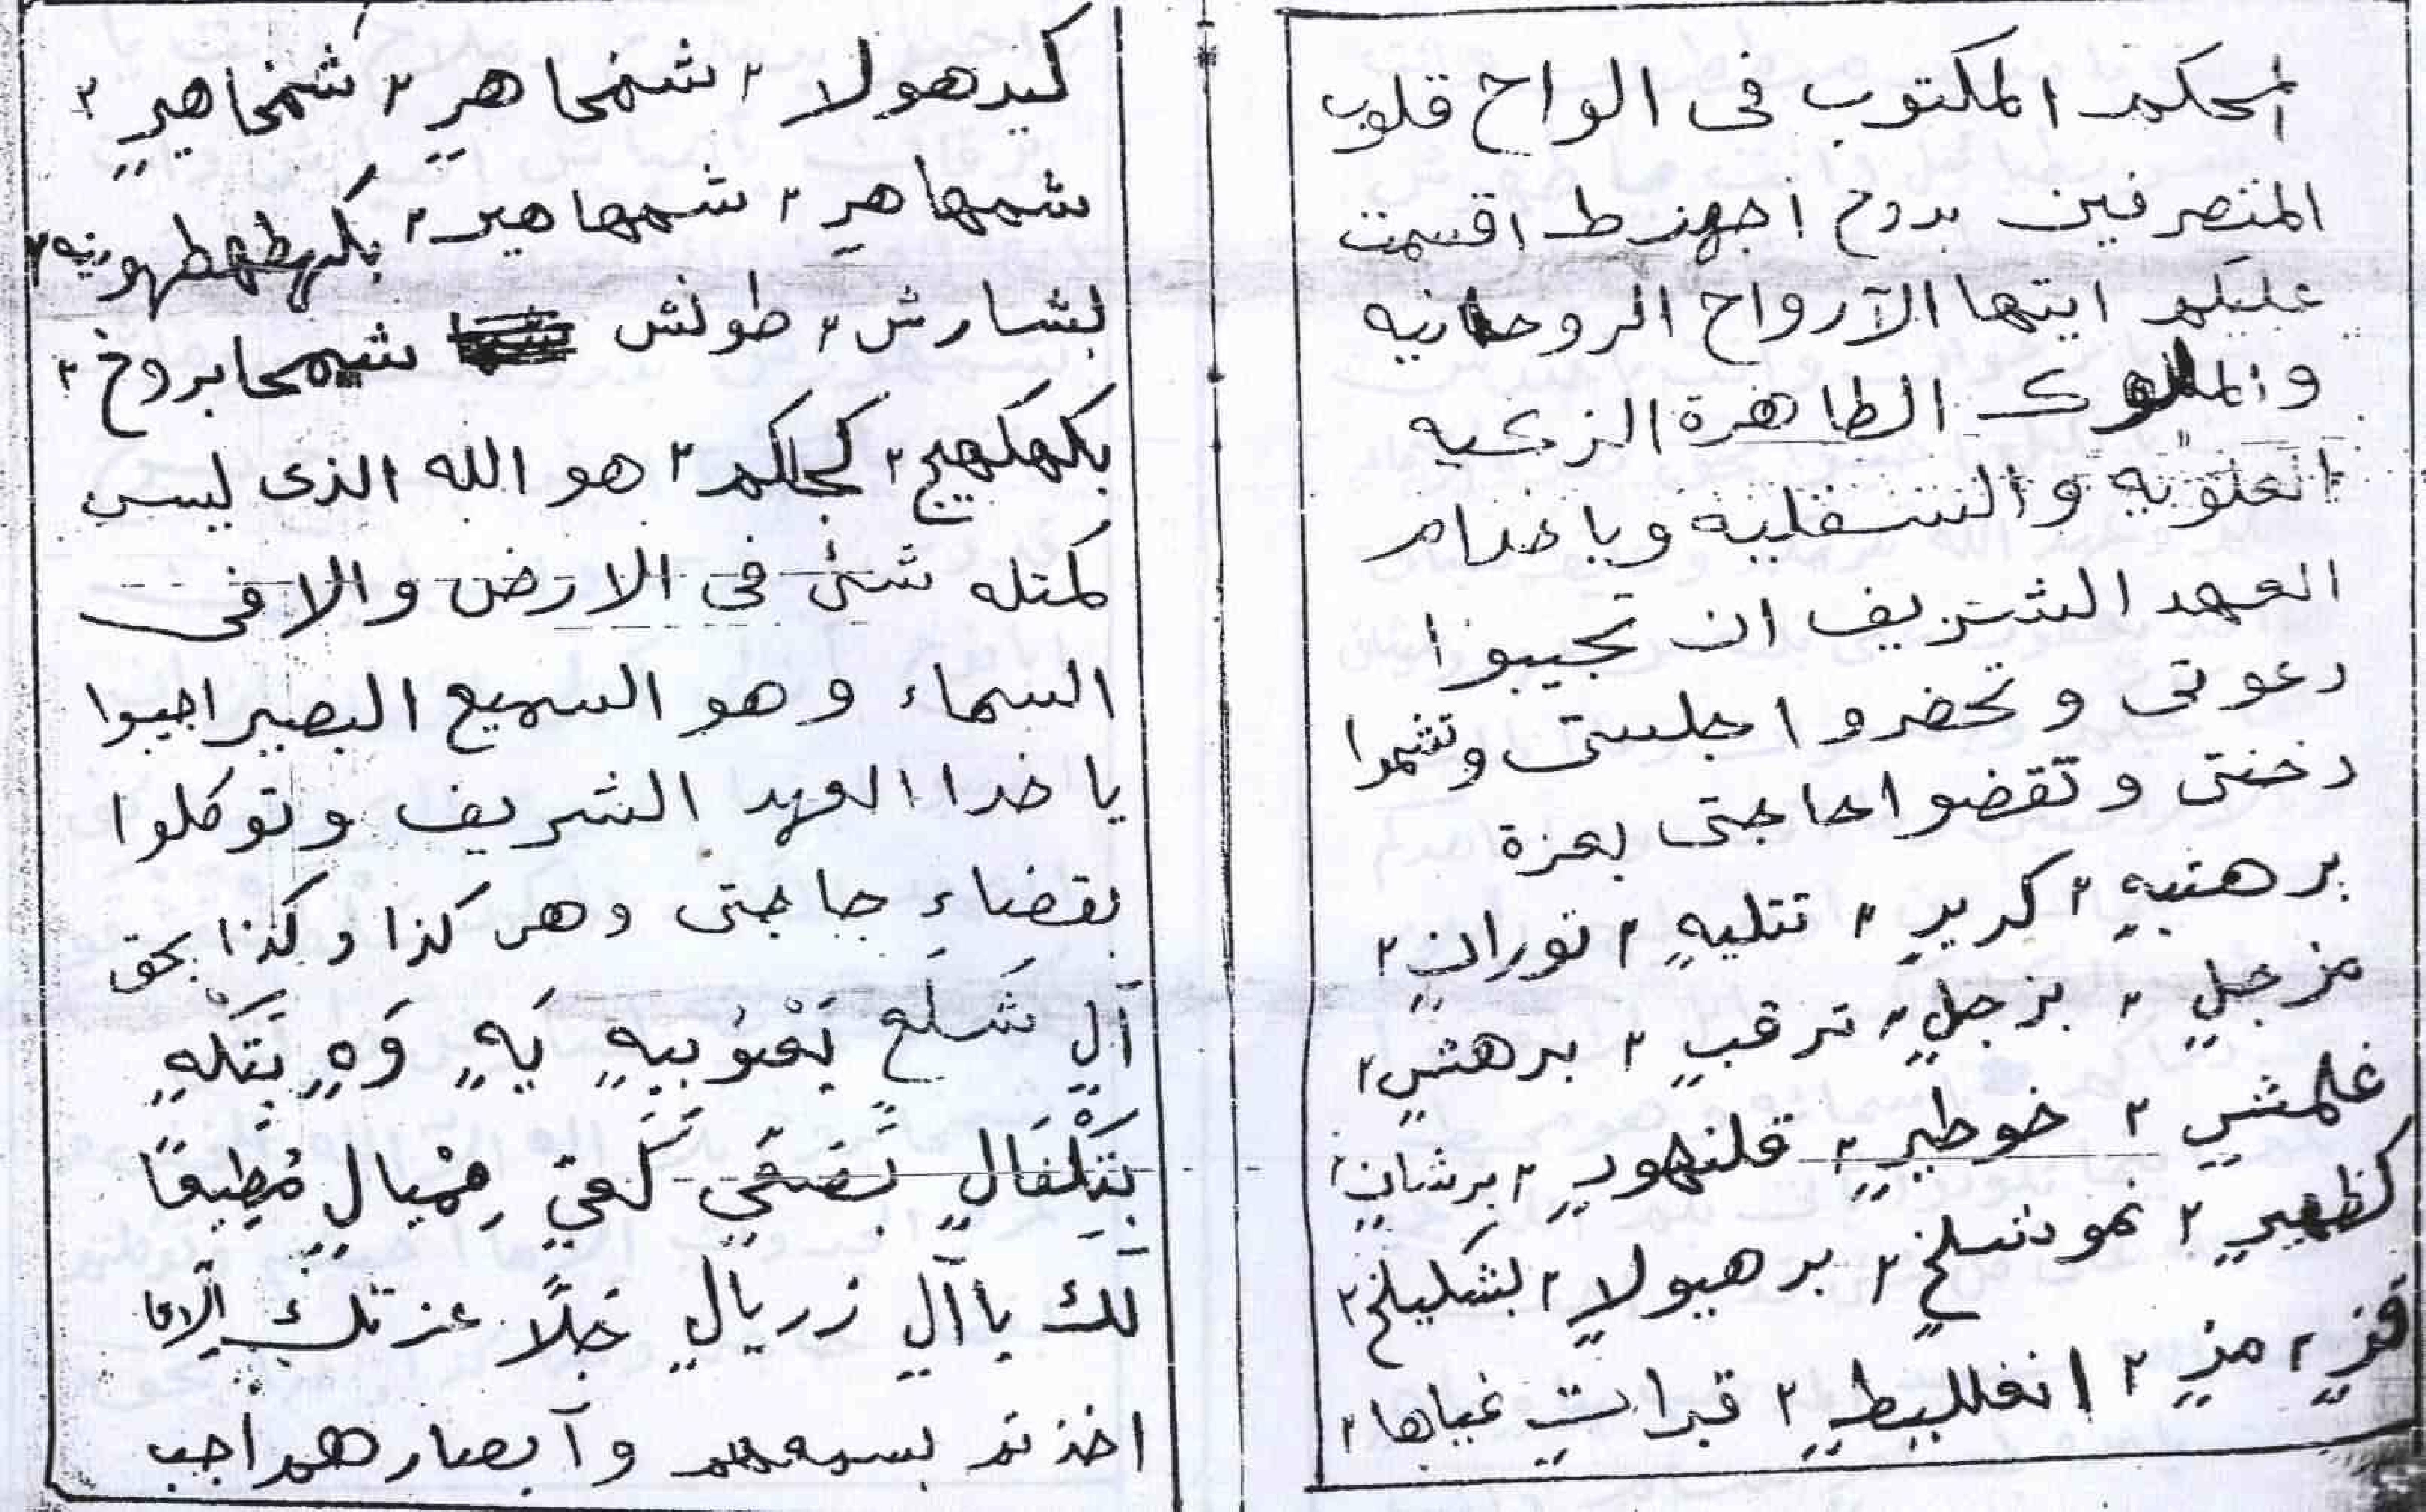 المحكم المكتوب فى الواح قلوب
المتصرفين بدوح اجهزط اقسمت
عليكم ايتها الآرواح الروحانيه
والملوك الطاهرة الزكيه
العلويه والسفليه وياخدام
العهد الشريف ان تجيبوا
دعوتى وتحضروا جلستى وتشموا
دخنتى وتقضوا حاجتى بعزة
برهتيهٍ ٢ كريرٍ ٢ تتليهٍ ٢ تورانٍ ٢
مزجلٍ ٢ بزجلٍ ٢ ترقبٍ ٢ برهشٍ ٢
غلمشٍ ٢ خوطيرٍ ٢ قلنهودٍ ٢ برشانٍ ٢
كظهيرٍ ٢ نموشلخٍ ٢ برهيولاٍ ٢ بشكيلخٍ ٢
قزٍ ٢ مزٍ ٢ انغلليطٍ ٢ قبراتٍ غياها ٢
كيدهولا ٢ شمخاهرٍ ٢ شمخاهيرٍ ٢
شمهاهرٍ ٢ شمهاهير ٢ بكهطهطهونيه ٢
بشارش ٢ طونش شمخابروخ ٢
بكهكهيج ٢ كجلكم ٢ هو الله الذى ليس
كمتله شئ فى الارض والافى
السماء وهو السميع البصير اجيبوا
ياخدا العهد الشريف وتوكلوا
بقضاءِ حاجتى وهى كذا وكذا بحق
آلٍ شَلَعٍ يَعْوُبيهٍ يَهٍ وَهٍ بَتَكَهٍ
بَتَكْفَالٍ بَصَعَىٍ كَعَىٍ مِمْيالٍ مُطِيعًا
لك ياآلٍ زريالٍ جَلًا عزتك إلاما
اخذتم بسمعهم وآبصارهم أجب